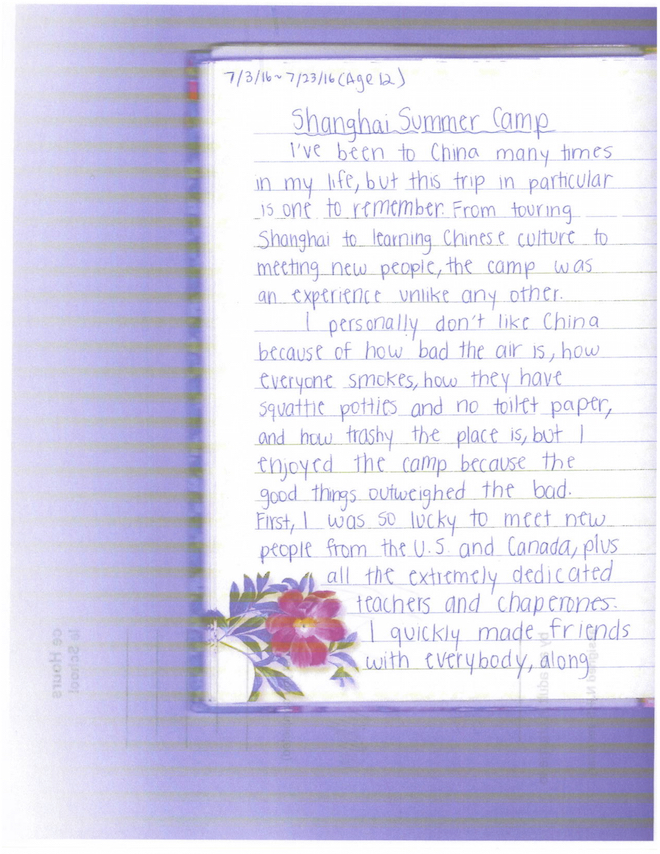 7/3/16~7/23/16 (Age 12)
Shanghai Summer Camp
I've been to China many times
in my life, but this trip in particular
is one to remember. From touring
Shanghai to learning Chinese culture to
meeting new people, the camp was
an experience unlike any other.
I personally don't like China
because of how bad the air is, how
everyone smokes, how they have
squattie potties and no toilet paper,
and how trashy the place is, but I
enjoyed the camp because the
good things outweighed the bad.
First, I was so lucky to meet new
people from the U.S. and Canada, plus
all the extremely dedicated
teachers and chaperones.
I quickly made friends
with everybody, along
ce Hours
le School